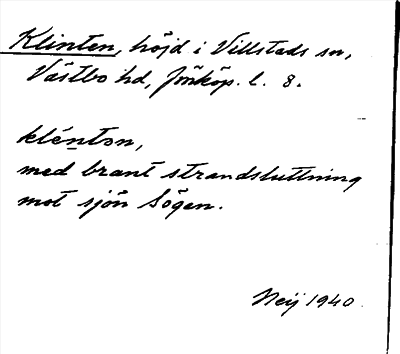 Klinten, höjd i Villstads sn,
Västbo hd, Jönköp. l. 8.
klénton,
med brant strandsluttning
mot sjön Sögen.
Neij 1940